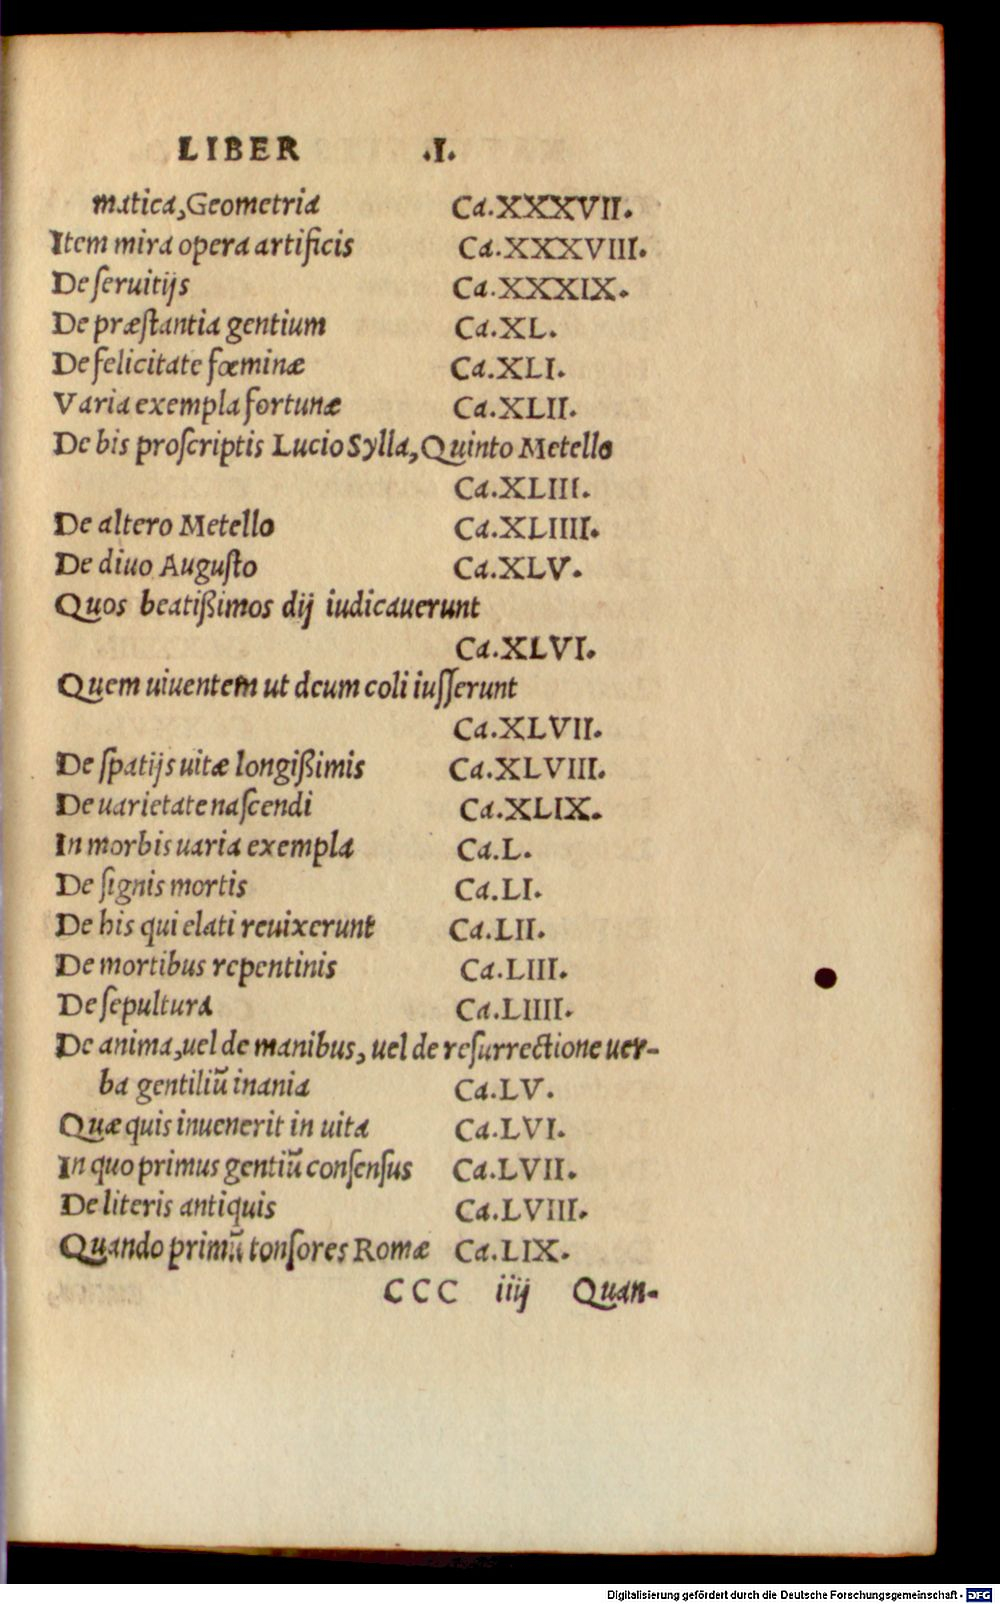 LIBER .I.
matica,Geometria Ca.XXXVII.
Item mira opera artificis Ca.XXXVIII.
De ſeruitijs Ca.XXXIX.
De præſtantia gentium Ca.XL.
De felicitate fœminæ Ca.XLI.
Varia exempla fortunæ Ca.XLII.
De bis proſcriptis Lucio Sylla,Quinto Metello
Ca.XLIII.
De altero Metello Ca.XLIIII.
De diuo Auguſto Ca.XLV.
Quos beatißimos dij iudicauerunt
Ca.XLVI.
Quem uiuentem ut deum coli iuſſerunt
Ca.XLVII.
De ſpatijs uitæ longißimis Ca.XLVIII.
De uarietate naſcendi Ca.XLIX.
In morbis uaria exempla Ca.L.
De ſignis mortis Ca.LI.
De his qui elati reuixerunt Ca.LII.
De mortibus repentinis Ca.LIII.
De ſepultura Ca.LIIII.
De anima,uel de manibus, uel de reſurrectione uer-
ba gentiliū inania Ca.LV.
Quæ quis inuenerit in uita Ca.LVI.
In quo primus gentiū conſenſus Ca.LVII.
De literis antiquis Ca.LVIII.
Quando primū tonſores Romæ Ca.LIX.
CCC iiij Quan-
Digitalisierung gefördert durch die Deutsche Forschungsgemeinschaft - DFG